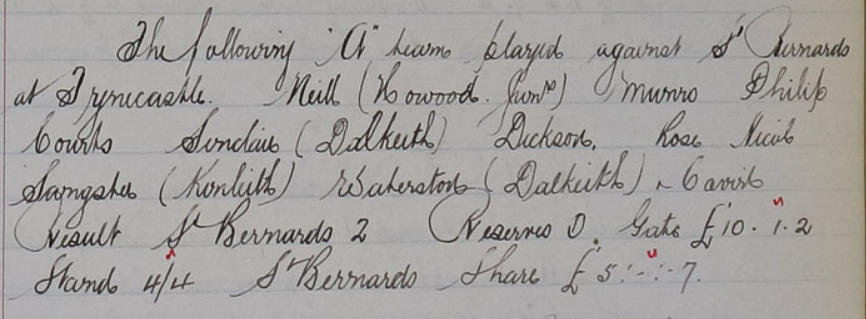 The following "A" team played against St Bernards
at Tynecastle. Neill (Howood Junrs) Munro Philip
Courts Sinclair (Dalkeith) Dickson, Rose Nicol
Sangster (Kinleith) Waterston (Dalkeith) &
Result St Bernards 2 Reserves 0. Gate £10. 1. 2
Stand 4/4 St Bernards Share £5:-:-7.